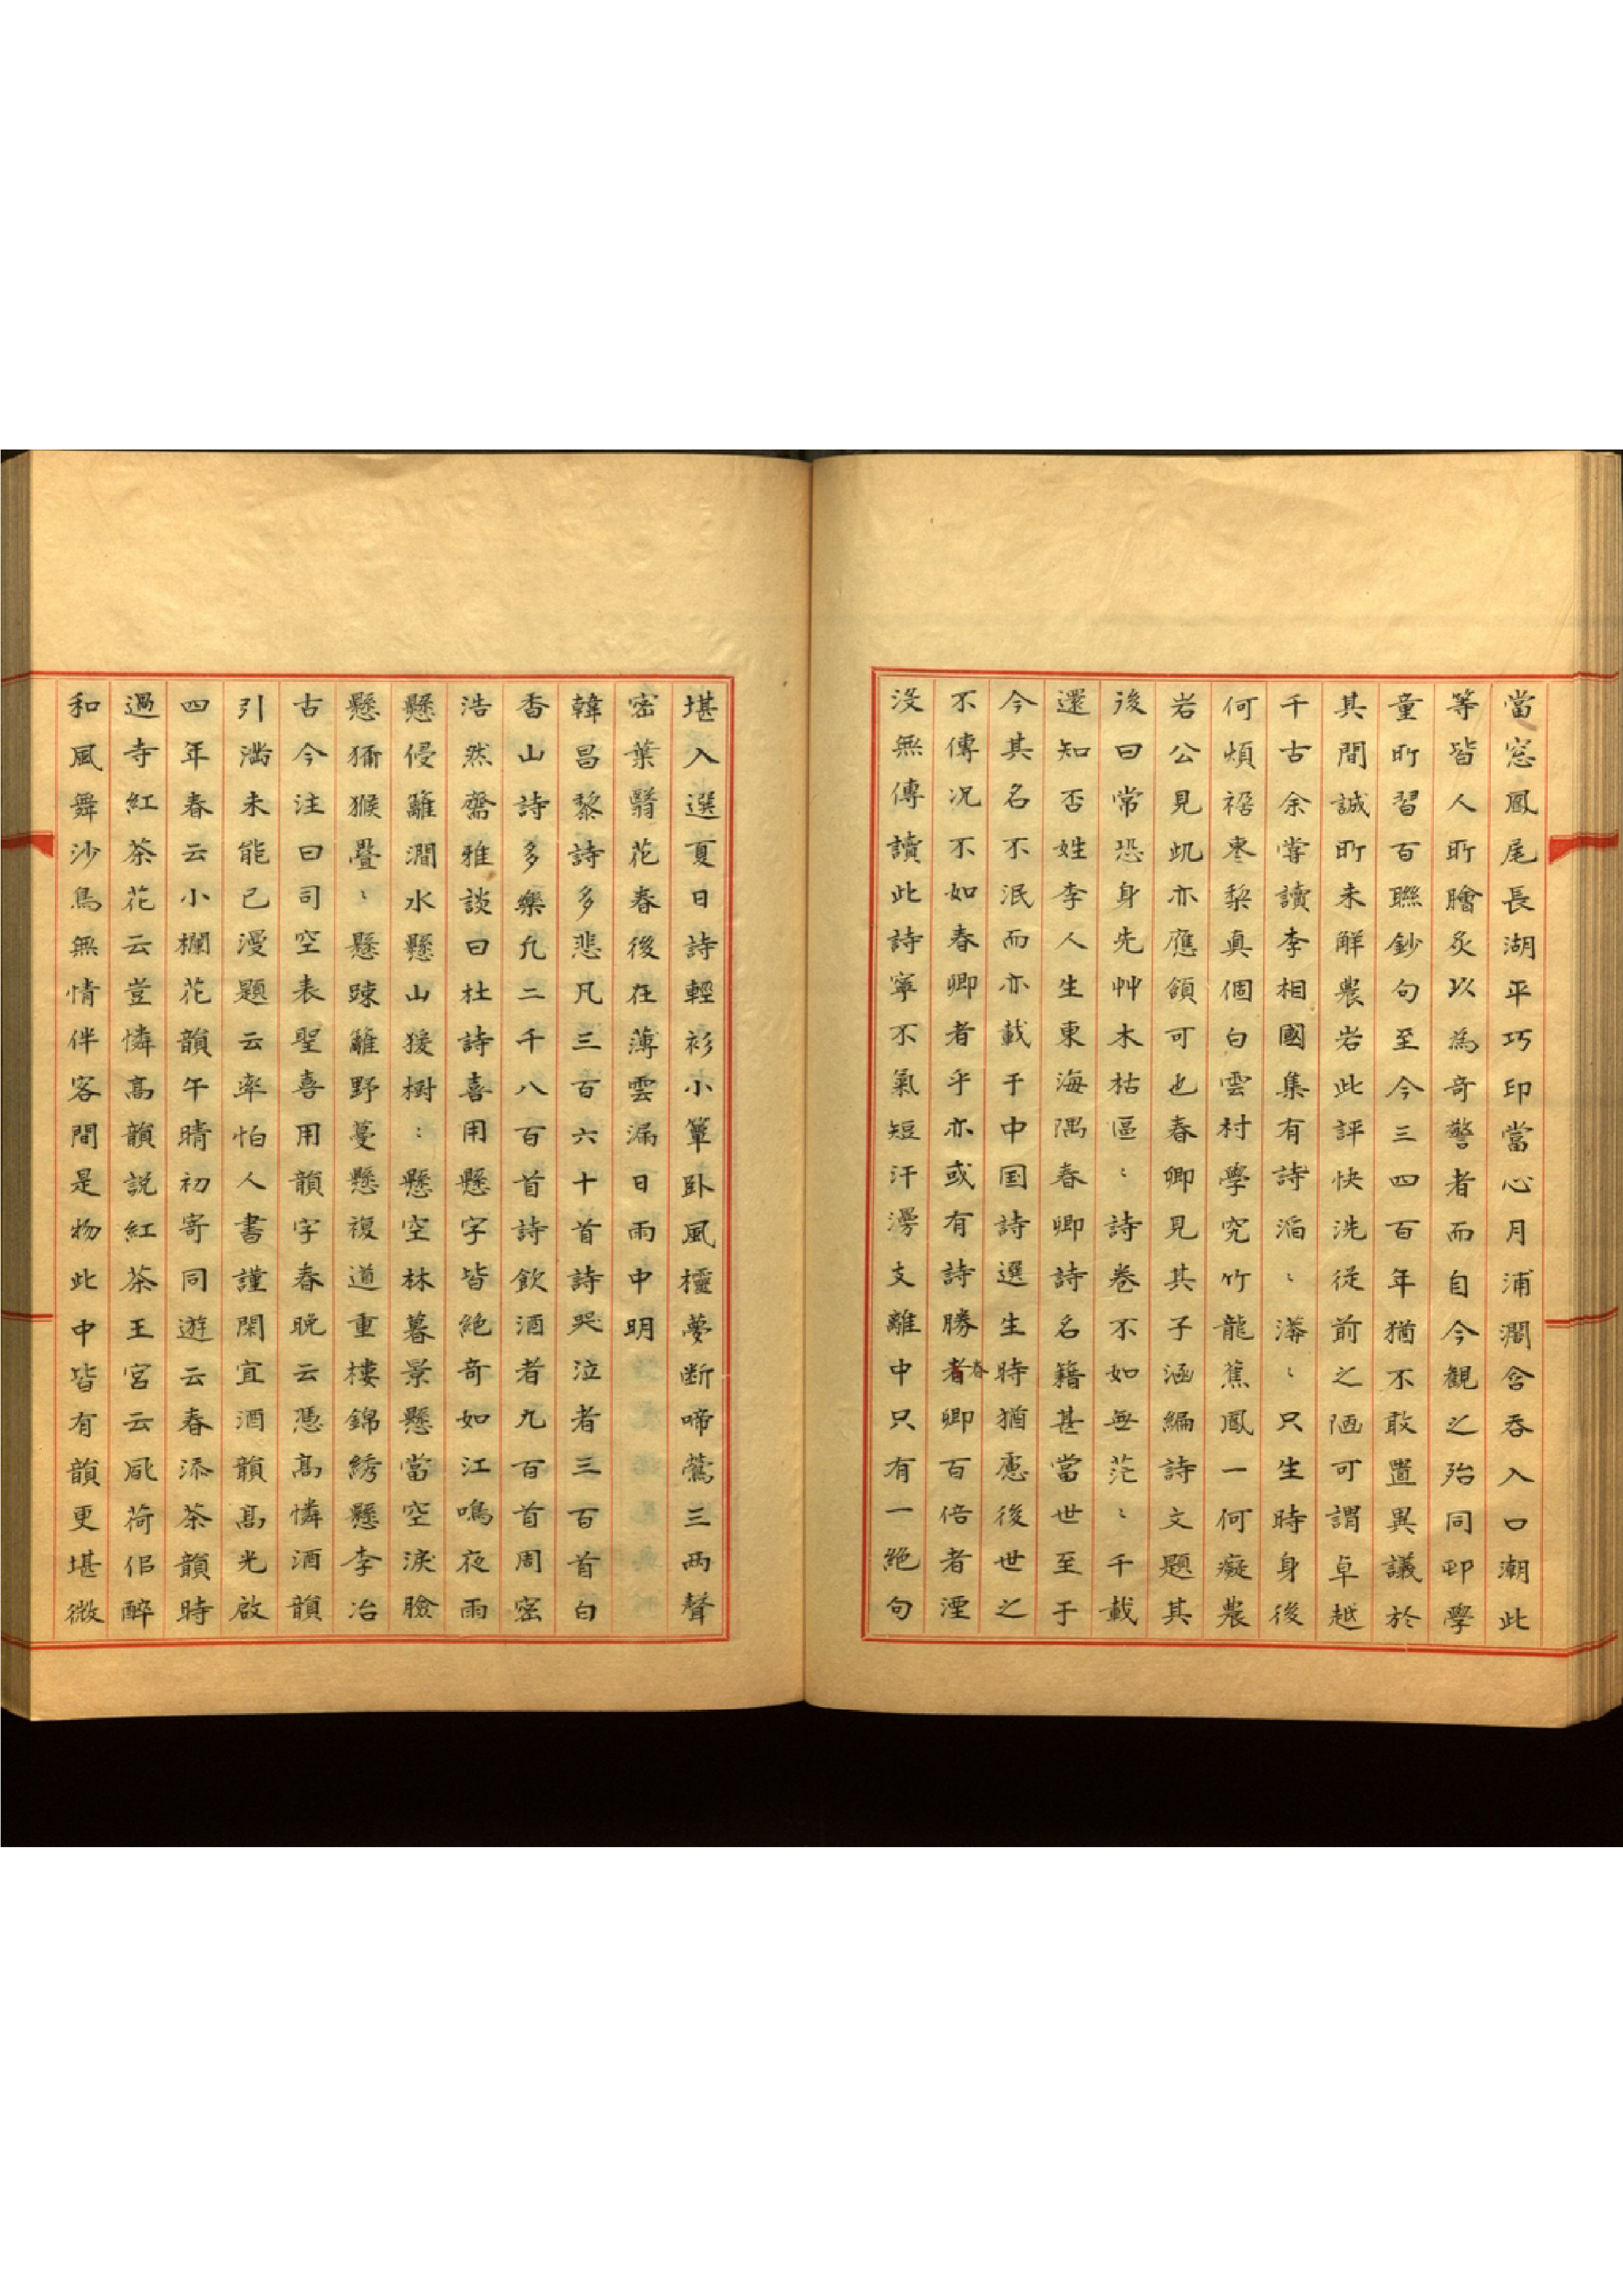 當窓鳳尾長湖平巧印當心月浦濶含吞入口潮此
等皆人所膾炙以爲奇警者而自今観之殆同邨學
童所習百聯鈔句至今三四百年猶不敢置異議於
其間誠所未解農岩此評快洗從前之陋可謂卓越
千古余嘗讀李相國集有詩滔〻滿〻只生時身後
何煩禍棗梨眞個白雲村學究竹龍蕉鳳一何癡農
岩公見此亦應頷可也春卿見其子涵編詩文題其
後曰常恐身先艸木枯區〻詩卷不如無茫〻千載
還知否姓李人生東海隅春卿詩名籍甚當世至于
今其名不泯而亦載于中国詩選生時猶慮後世之
不傳况不如春卿者乎亦或有詩勝者春卿百倍者湮
没無傳讀此詩寧不氣短汗漫支離中只有一絶句
堪入選夏日詩輕衫小簟卧風櫺夢断啼鶯三兩聲
密葉翳花春後在薄雲漏日雨中明
韓昌黎詩多悲凡三百六十首詩哭泣者三百首白
香山詩多樂凢二千八百首詩飲酒者九百首周密
浩然齋雅談曰杜詩喜用懸字皆絶奇如江鳴夜雨
懸侵籬澗水懸山猨樹〻懸空林暮景懸當空淚臉
懸獼猴疊〻懸踈籬野蔓懸複道重樓錦綉懸李冶
古今注曰司空表聖喜用韻字春晩云憑髙憐酒韻
引滿未能已漫題云率怕人書謹閑宜酒韻髙光啟
四年春云小欄花韻午晴初寄同遊云春添茶韻時
過寺紅茶花云豈憐髙韻説紅茶王宮云風荷佀醉
和風舞沙鳥無情伴客間是物此中皆有韻更堪微